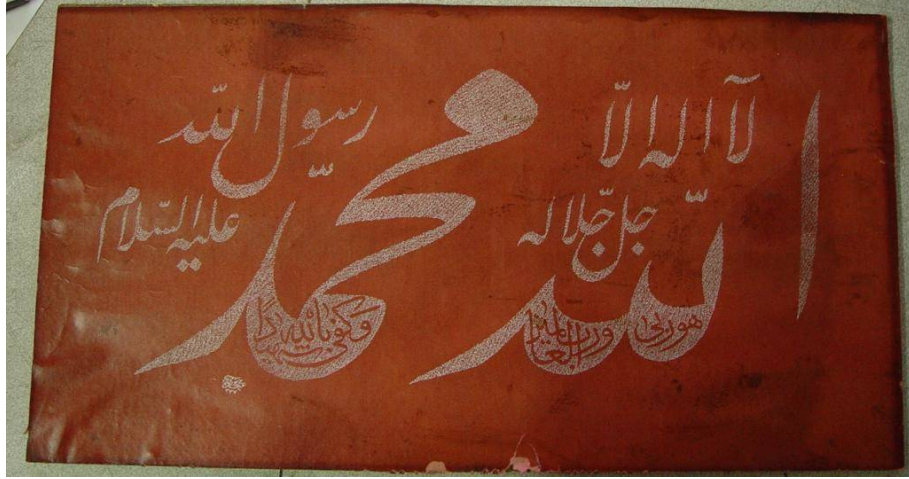 لآ اله الّا
الله
جل جلاله
هو ربي ورب العالمين
محمد
رسول الله
عليه السّلام
وكفى بالله شهيدا